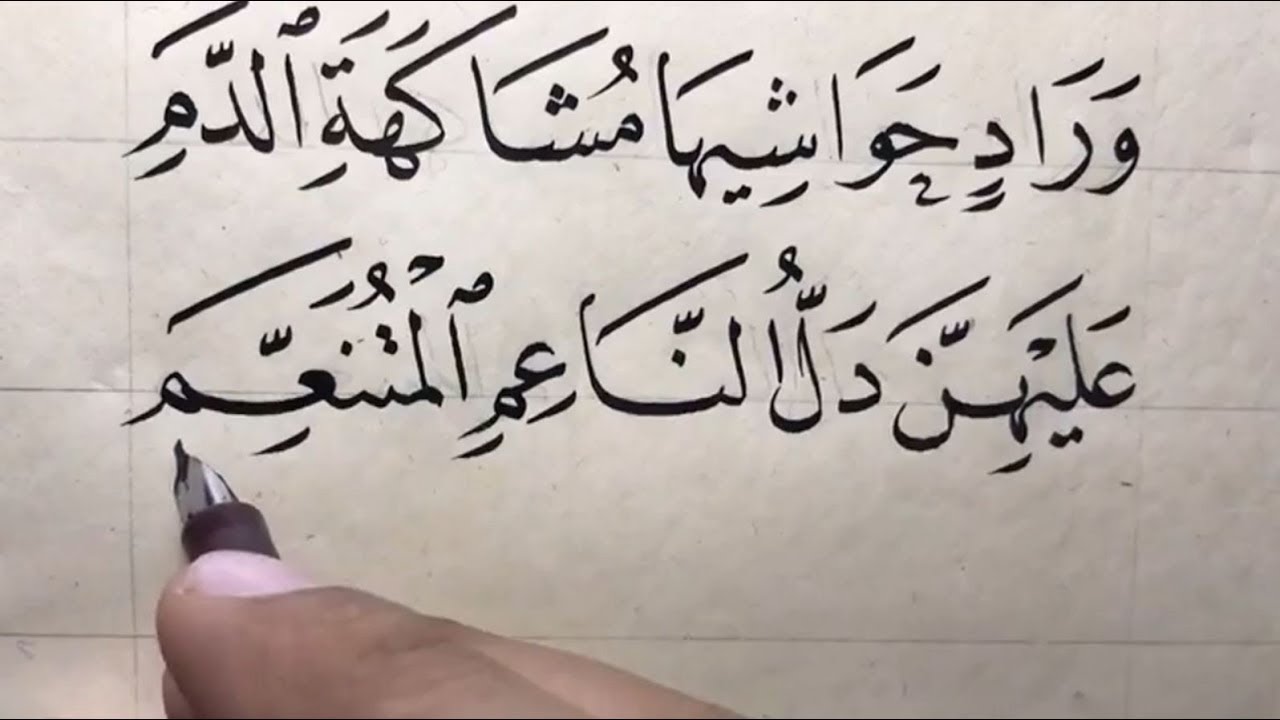 وَرَادٍ حَوَاشِيهَا مُشَاكَهَةِ ٱلدَّمِ
عَلَيْهِنَّ دَلُّ النَّاعِمِ ٱلْمُتَنَعِّم